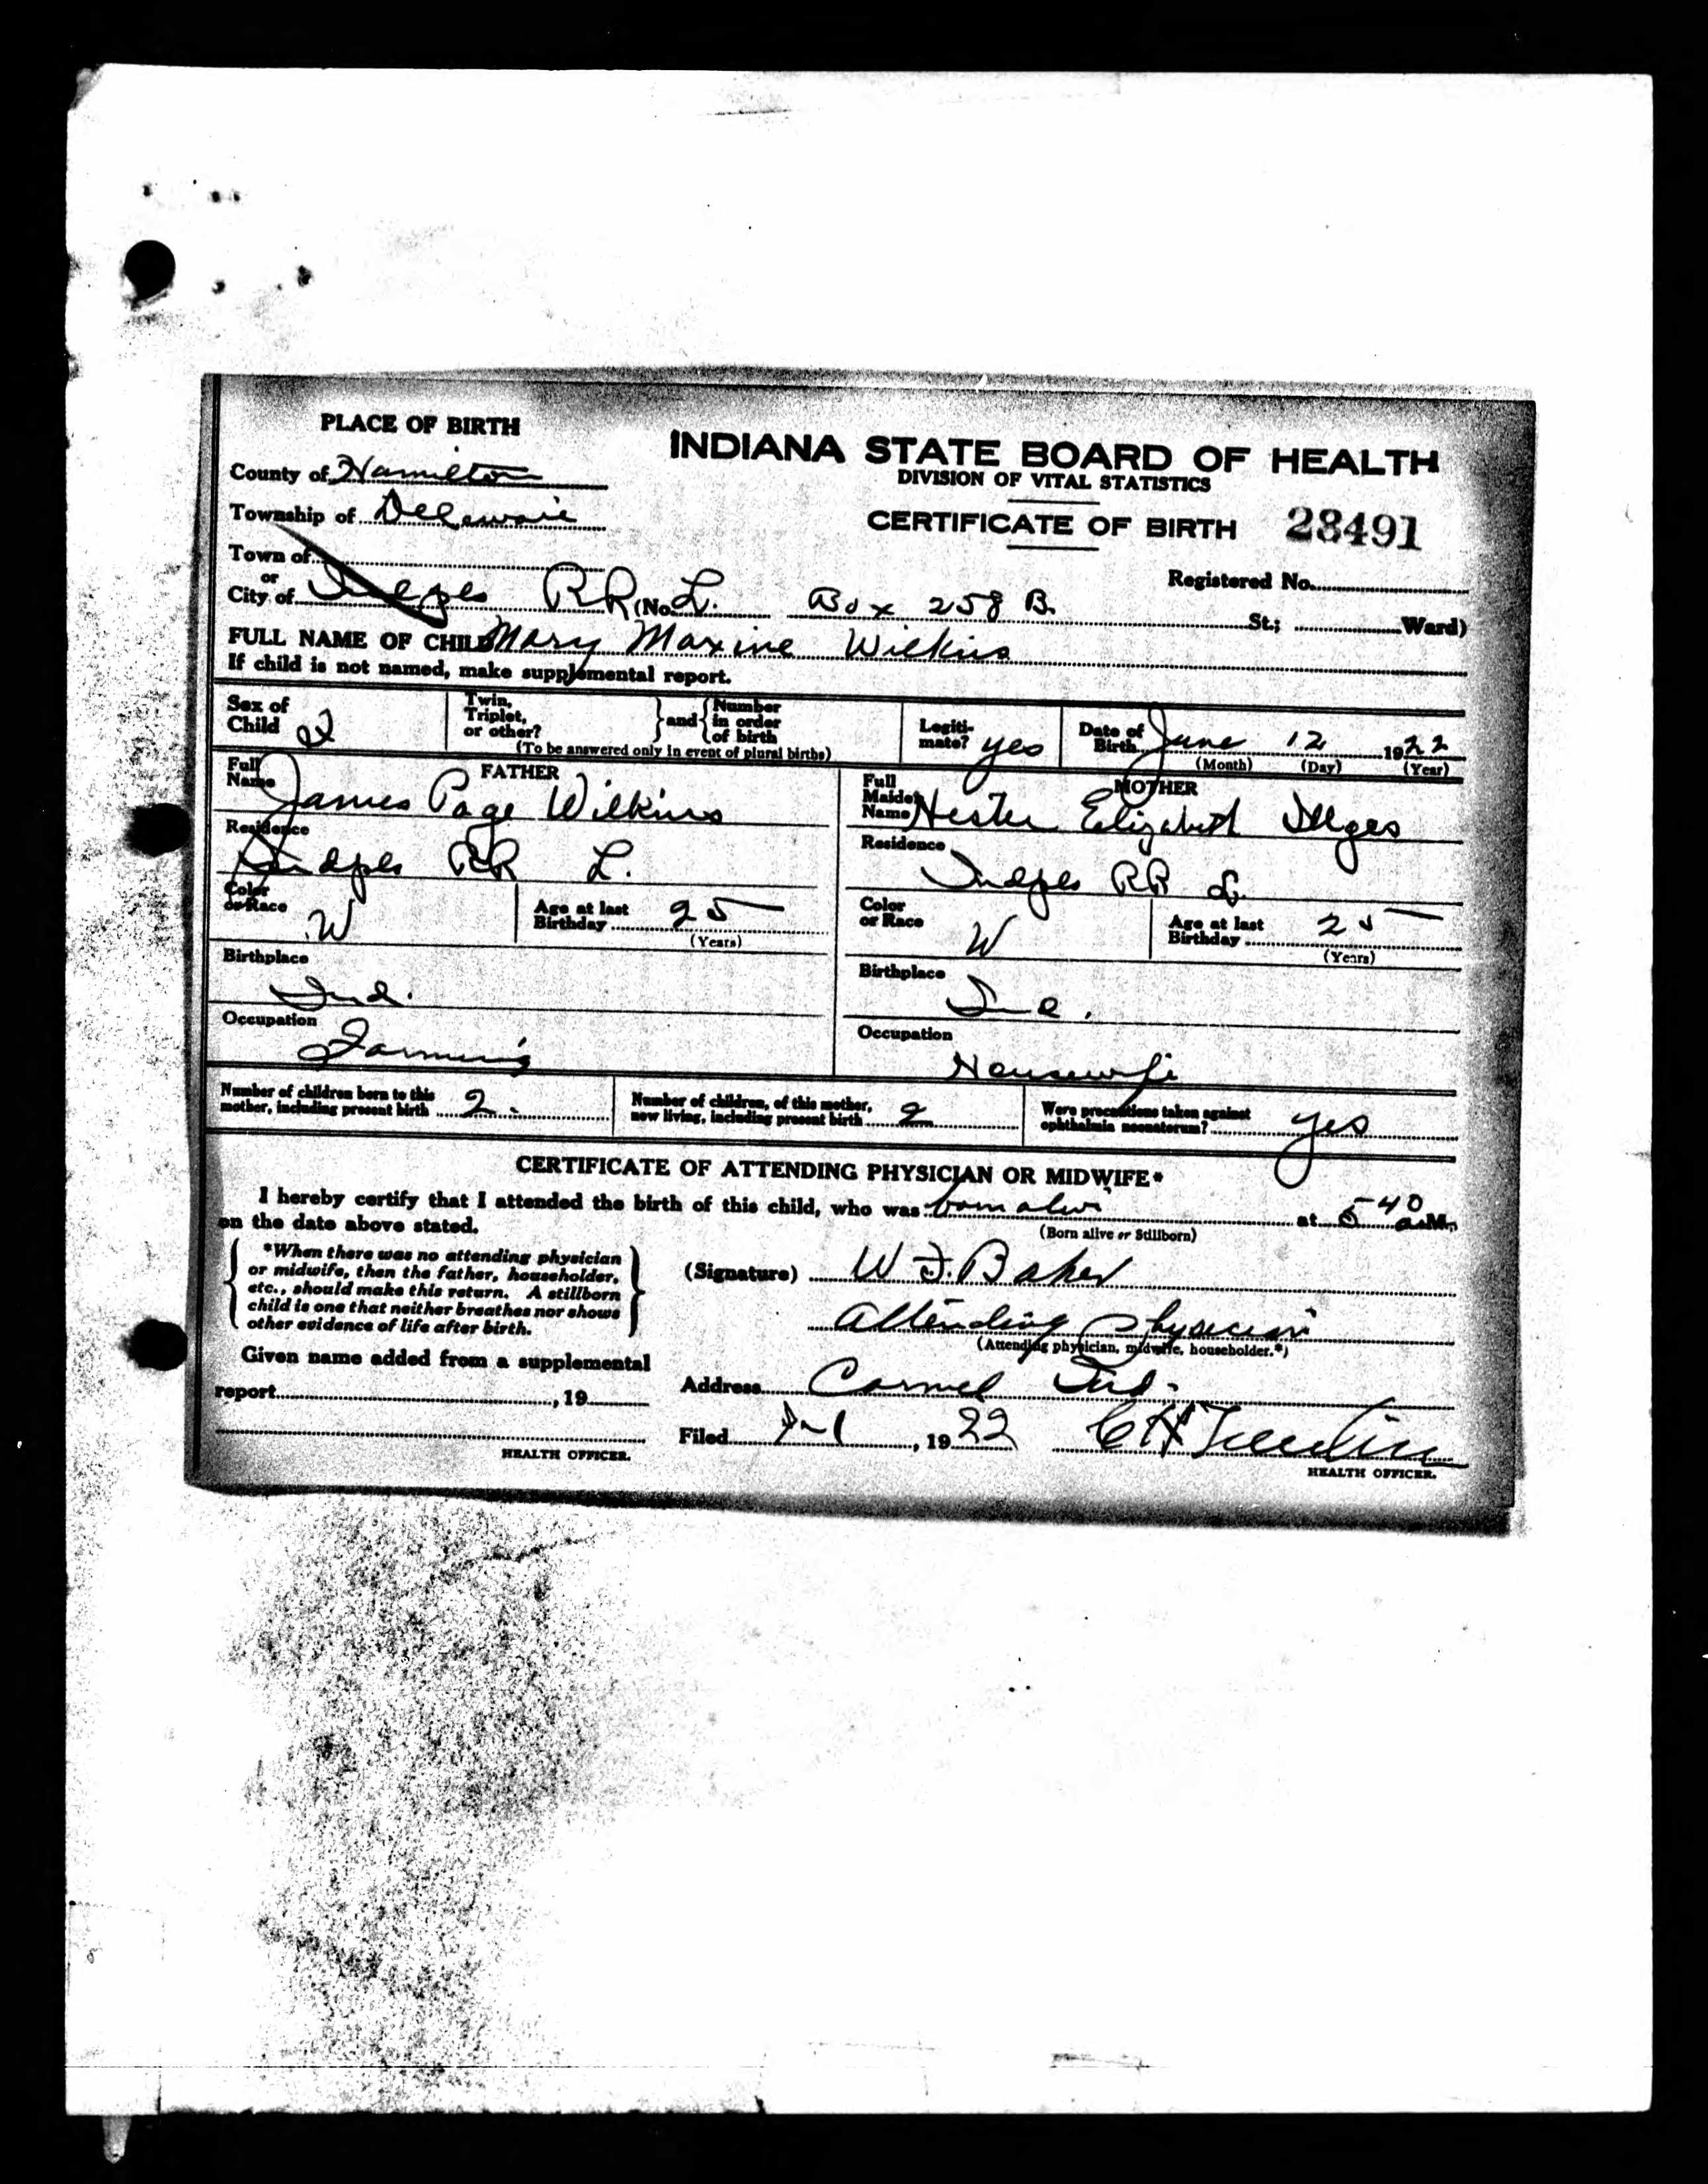 PLACE OF BIRTH
INDIANA STATE BOARD OF HEALTH
DIVISION OF VITAL STATISTICS
CERTIFICATE OF BIRTH 28491
County of Hamilton
Township of Delaware
Town of
or
City of Indpls RR (No. L. Box 258 B. St.; Ward)
Registered No.
FULL NAME OF CHILD Mary Maxine Wilkins
If child is not named, make supplemental report.
Sex of Child
Twin, Triplet, or other? and Number in order of birth
(To be answered only in event of plural births)
Legitimate? yes
Date of Birth June 12 1922
(Month) (Day) (Year)
FATHER
Full Name James Page Wilkins
Residence Indpls RR L.
Color or Race W
Age at last Birthday 25
(Years)
Birthplace Ind.
Occupation Farming
MOTHER
Full Maiden Name Hester Elizabeth
Residence Indpls RR L.
Color or Race W
Age at last Birthday 25
(Years)
Birthplace Ind.
Occupation Housewife
Number of children born to this mother, including present birth 2.
Number of children, of this mother, now living, including present birth 2
Were precautions taken against ophthalmia neonatorum? yes
CERTIFICATE OF ATTENDING PHYSICIAN OR MIDWIFE*
I hereby certify that I attended the birth of this child, who was born alive at 5-40 a.M.,
(Born alive or Stillborn)
on the date above stated.
*When there was no attending physician
or midwife, then the father, householder,
etc., should make this return. A stillborn
child is one that neither breathes nor shows
other evidence of life after birth.
(Signature) W. F. Baker
Attending physician
(Attending physician, midwife, householder.*)
Given name added from a supplemental
report , 19
HEALTH OFFICER.
Address Carmel Ind.
Filed , 1922 C H
HEALTH OFFICER.